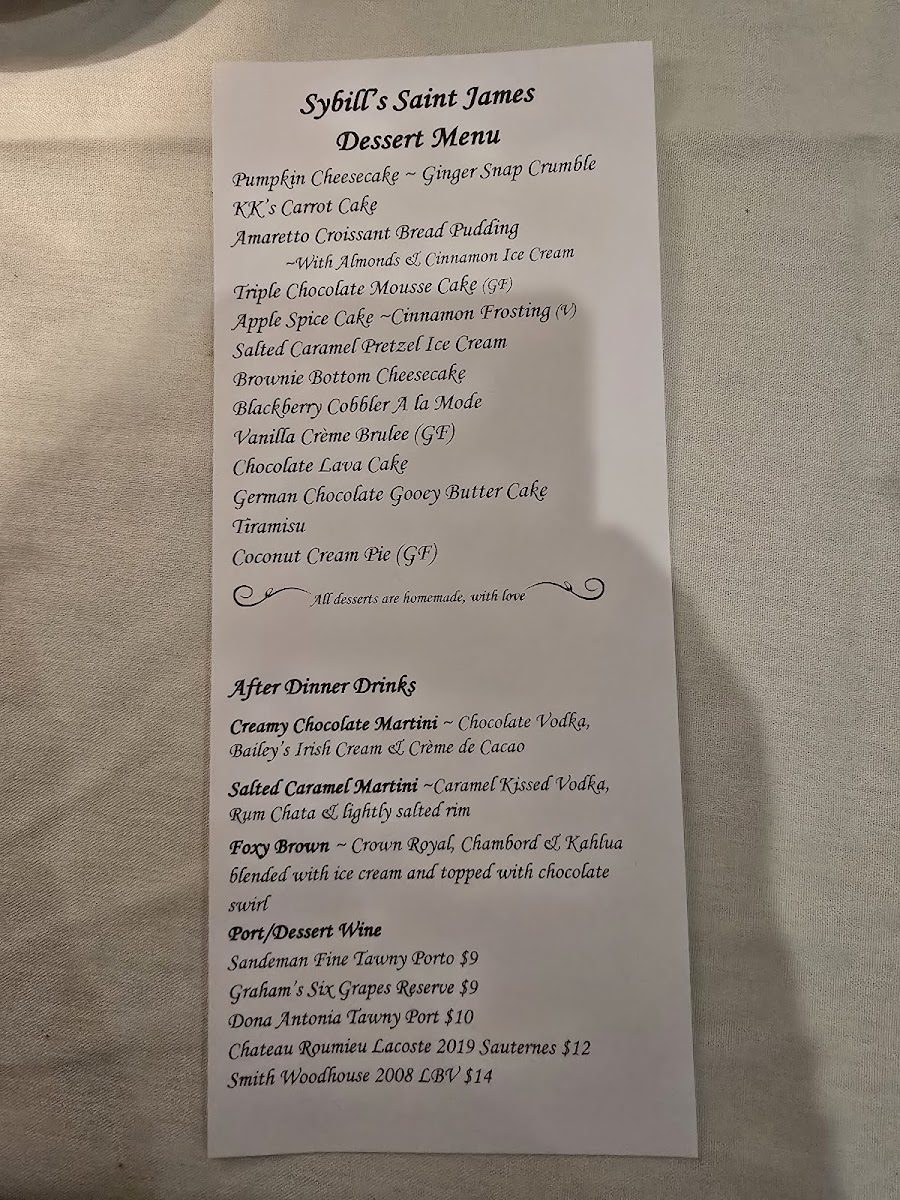 Sybill's Saint James
Dessert Menu
Pumpkin Cheesecake ~ Ginger Snap Crumble
KK's Carrot Cake
Amaretto Croissant Bread Pudding
~With Almonds & Cinnamon Ice Cream
Triple Chocolate Mousse Cake (GF)
Apple Spice Cake ~Cinnamon Frosting (V)
Salted Caramel Pretzel Ice Cream
Brownie Bottom Cheesecake
Blackberry Cobbler A la Mode
Vanilla Crème Brulee (GF)
Chocolate Lava Cake
German Chocolate Gooey Butter Cake
Tiramisu
Coconut Cream Pie (GF)
All desserts are homemade, with love
After Dinner Drinks
Creamy Chocolate Martini ~ Chocolate Vodka,
Bailey's Irish Cream & Crème de Cacao
Salted Caramel Martini ~Caramel Kissed Vodka,
Rum Chata & lightly salted rim
Foxy Brown ~ Crown Royal, Chambord & Kahlua
blended with ice cream and topped with chocolate
swirl
Port/Dessert Wine
Sandeman Fine Tawny Porto $9
Graham's Six Grapes Reserve $9
Dona Antonia Tawny Port $10
Chateau Roumieu Lacoste 2019 Sauternes $12
Smith Woodhouse 2008 LBV $14